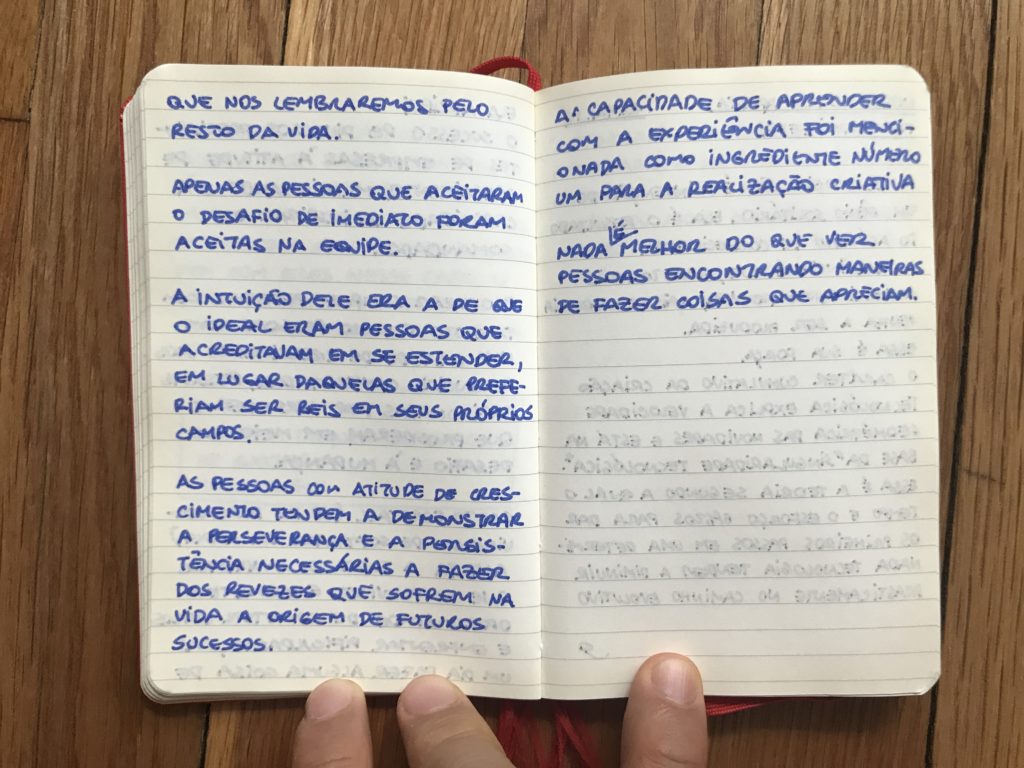 QUE NOS LEMBRAREMOS PELO
RESTO DA VIDA.
APENAS AS PESSOAS QUE ACEITARAM
O DESAFIO DE IMEDIATO FORAM
ACEITAS NA EQUIPE.
A INTUIÇÃO DELE ERA A DE QUE
O IDEAL ERAM PESSOAS QUE
ACREDITAVAM EM SE ESTENDER,
EM LUGAR DAQUELAS QUE PREFE-
RIAM SER REIS EM SEUS PRÓPRIOS
CAMPOS.
AS PESSOAS COM ATITUDE DE CRES-
CIMENTO TENDEM A DEMONSTRAR
A PERSEVERANÇA E A PERSIS-
TÊNCIA NECESSÁRIAS A FAZER
DOS REVEZES QUE SOFREM NA
VIDA A ORIGEM DE FUTUROS
SUCESSOS.
A CAPACIDADE DE APRENDER
COM A EXPERIÊNCIA FOI MENCI-
ONADA COMO INGREDIENTE NÚMERO
UM PARA A REALIZAÇÃO CRIATIVA
NADA É MELHOR DO QUE VER
PESSOAS ENCONTRANDO MANEIRAS
DE FAZER COISAS QUE APRECIAM.